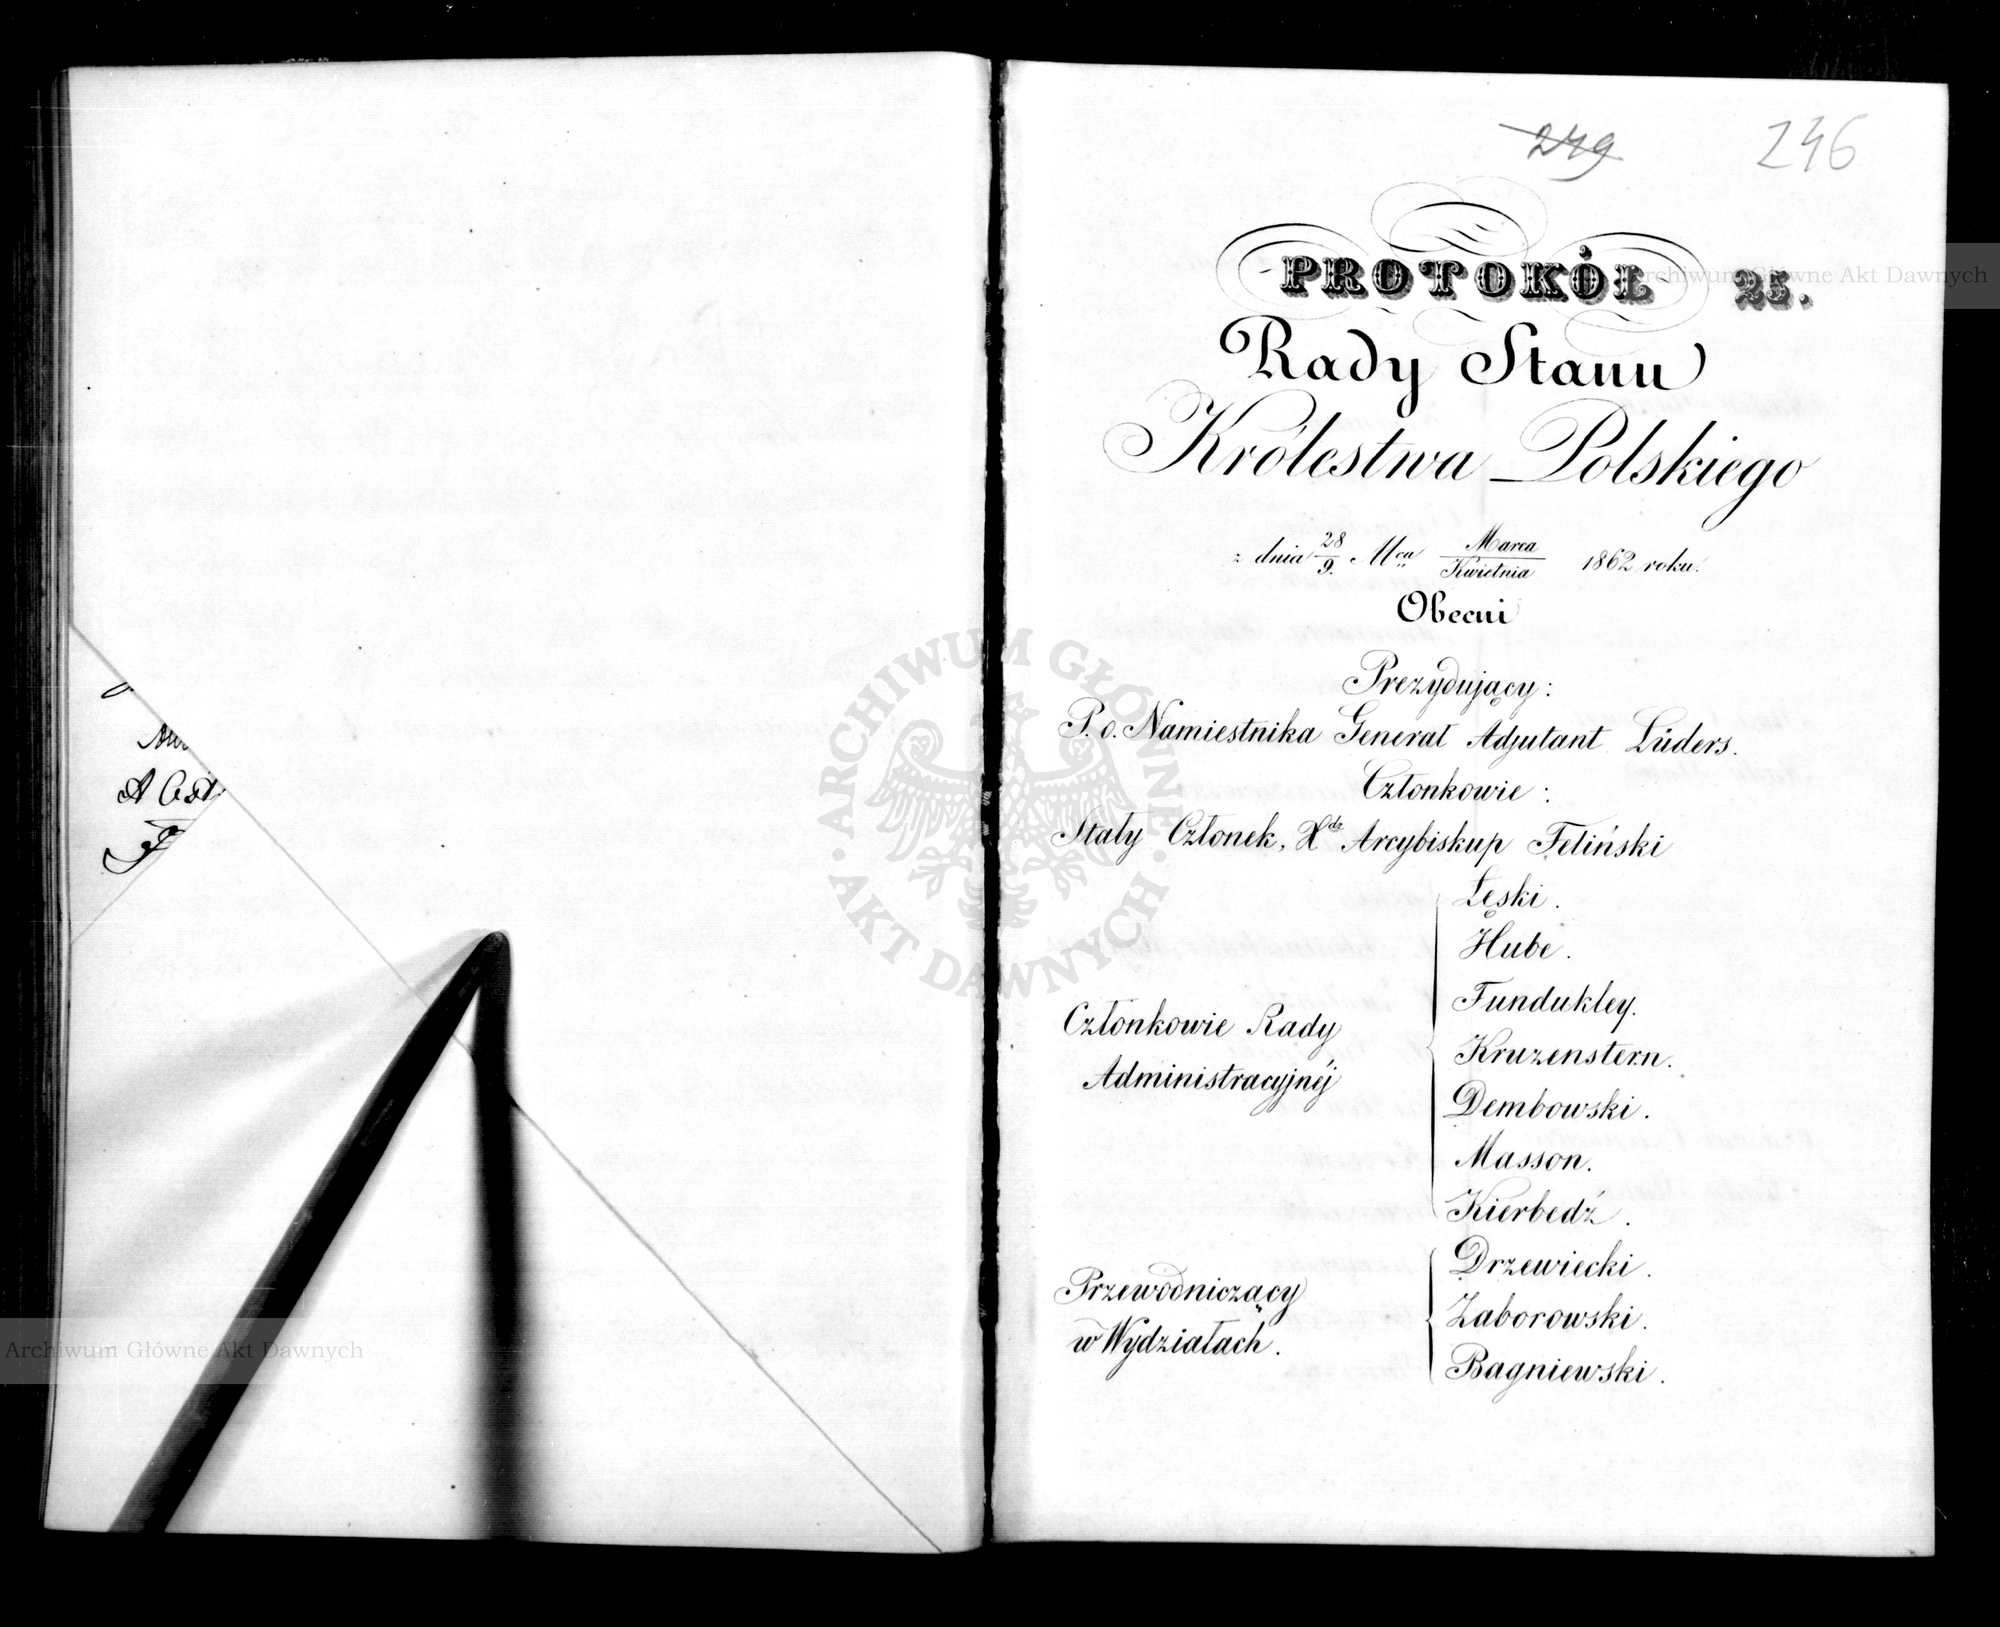 249
246
PROTOKÓŁ 25.
Rady Stanu
Królestwa Polskiego
z dnia 28/9. Mca Marca/Kwietnia 1862 roku.
Obecni
Prezydujący:
P. o. Namiestnika Generał Adjutant Lüders.
Członkowie:
Stały Członek, Xdz Arcybiskup Feliński
Członkowie Rady
Administracyjnéj
Łęski.
Hube.
Fundukley.
Kruzenstern.
Dembowski.
Masson.
Kierbedź.
Przewodniczący
w Wydziałach.
Drzewiecki.
Zaborowski.
Bagniewski.
ARCHIWUM GŁÓWNE
AKT DAWNYCH
Archiwum Główne Akt Dawnych
Archiwum Główne Akt Dawnych